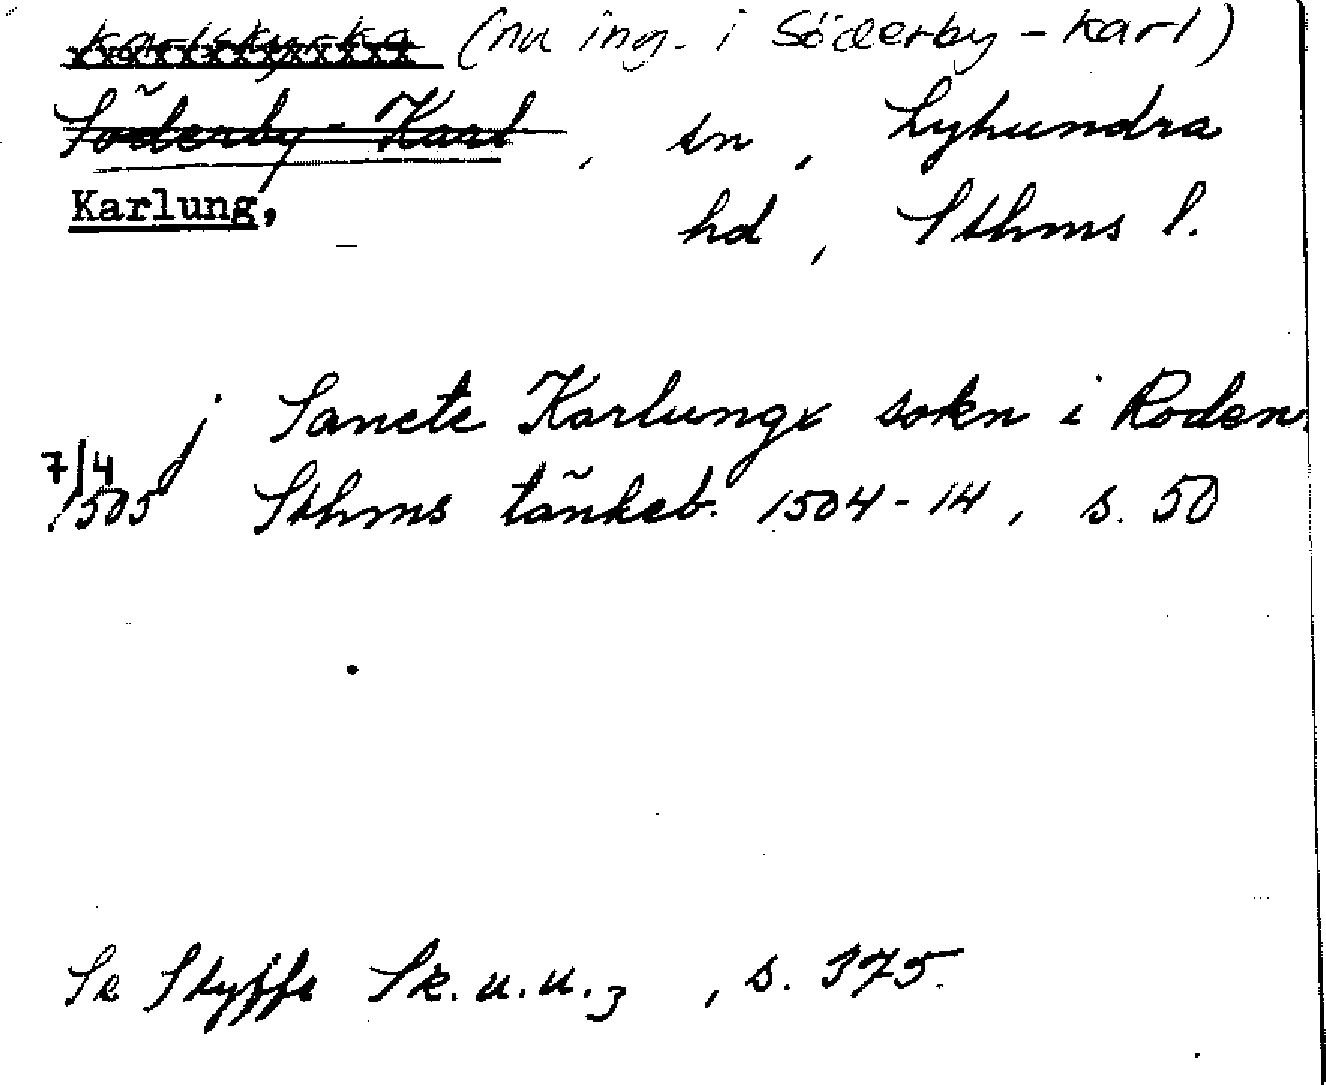 Karlskyrka (nu ing. i Söderby-Karl)
Söderby-Karl, sn, Lyhundra
Karlung, hd, Sthms l.
j Sancte Karlungx sokn i Roden.
7/4 1505 Sthms tänkeb. 1504-14, s. 50
Se Styffe Sk.u.u.3, s. 375.